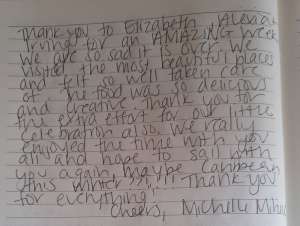 Thank you to Elizabeth, Alena &
Irving for an AMAZING week
We are so sad it is over. We
visited the most beautiful places
and felt so well taken care
of. The food was so delicious
and creative. Thank you for
the extra effort for our little
celebration also. We really
enjoyed the time with you
all and hope to sail with
you again, maybe Caribbean
this winter?!!! Thank you
for everything!
Cheers, Michelle